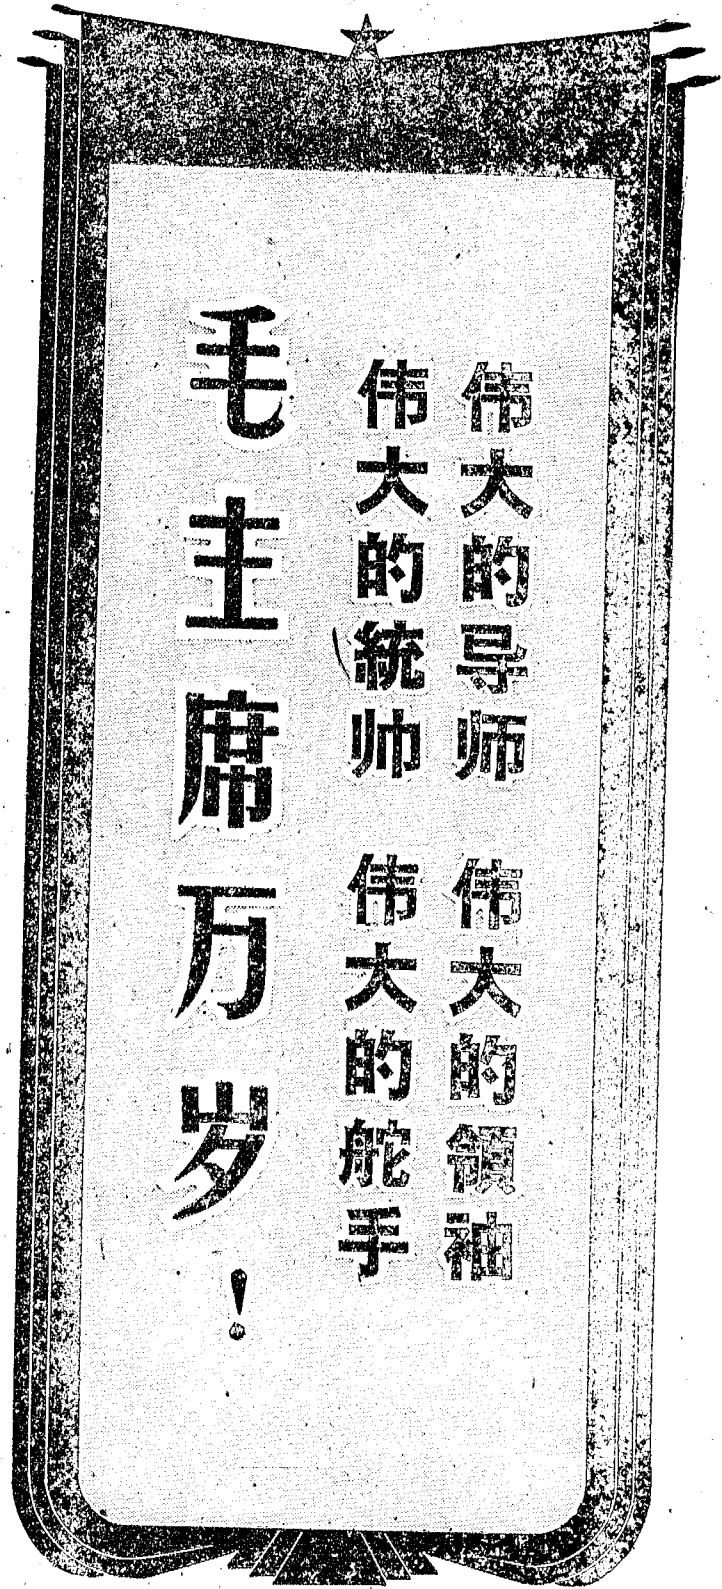 伟大的导师 伟大的領袖
伟大的統帅 伟大的舵手
毛主席万岁!